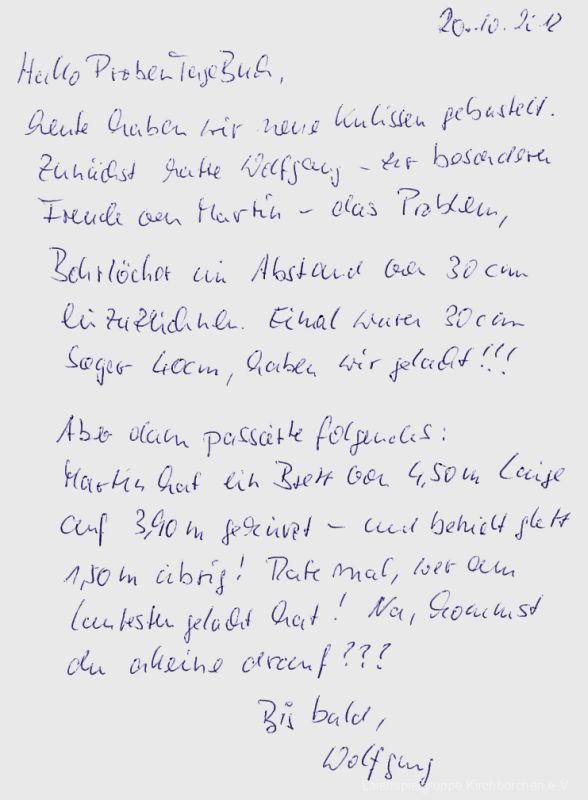 20.10.2012
Hallo ProbenTageBuch,
heute haben wir neue Kulissen gebastelt.
Zunächst hatte Wolfgang - zur besonderen
Freude von Martin - das Problem,
Bohrlöcher im Abstand von 30 cm
einzuzeichnen. Einmal waren 30 cm
sogar 40cm, haben wir gelacht!!!
Aber dann passierte folgendes:
Martin hat ein Brett von 4,50 m Länge
auf 3,90 m gekürzt - und behielt glatt
1,50 m übrig! Rate mal, wer am
lautesten gelacht hat! Na, kommst
du alleine drauf???
Bis bald,
Wolfgang
Laienspielgruppe Kirchborchen e.V.